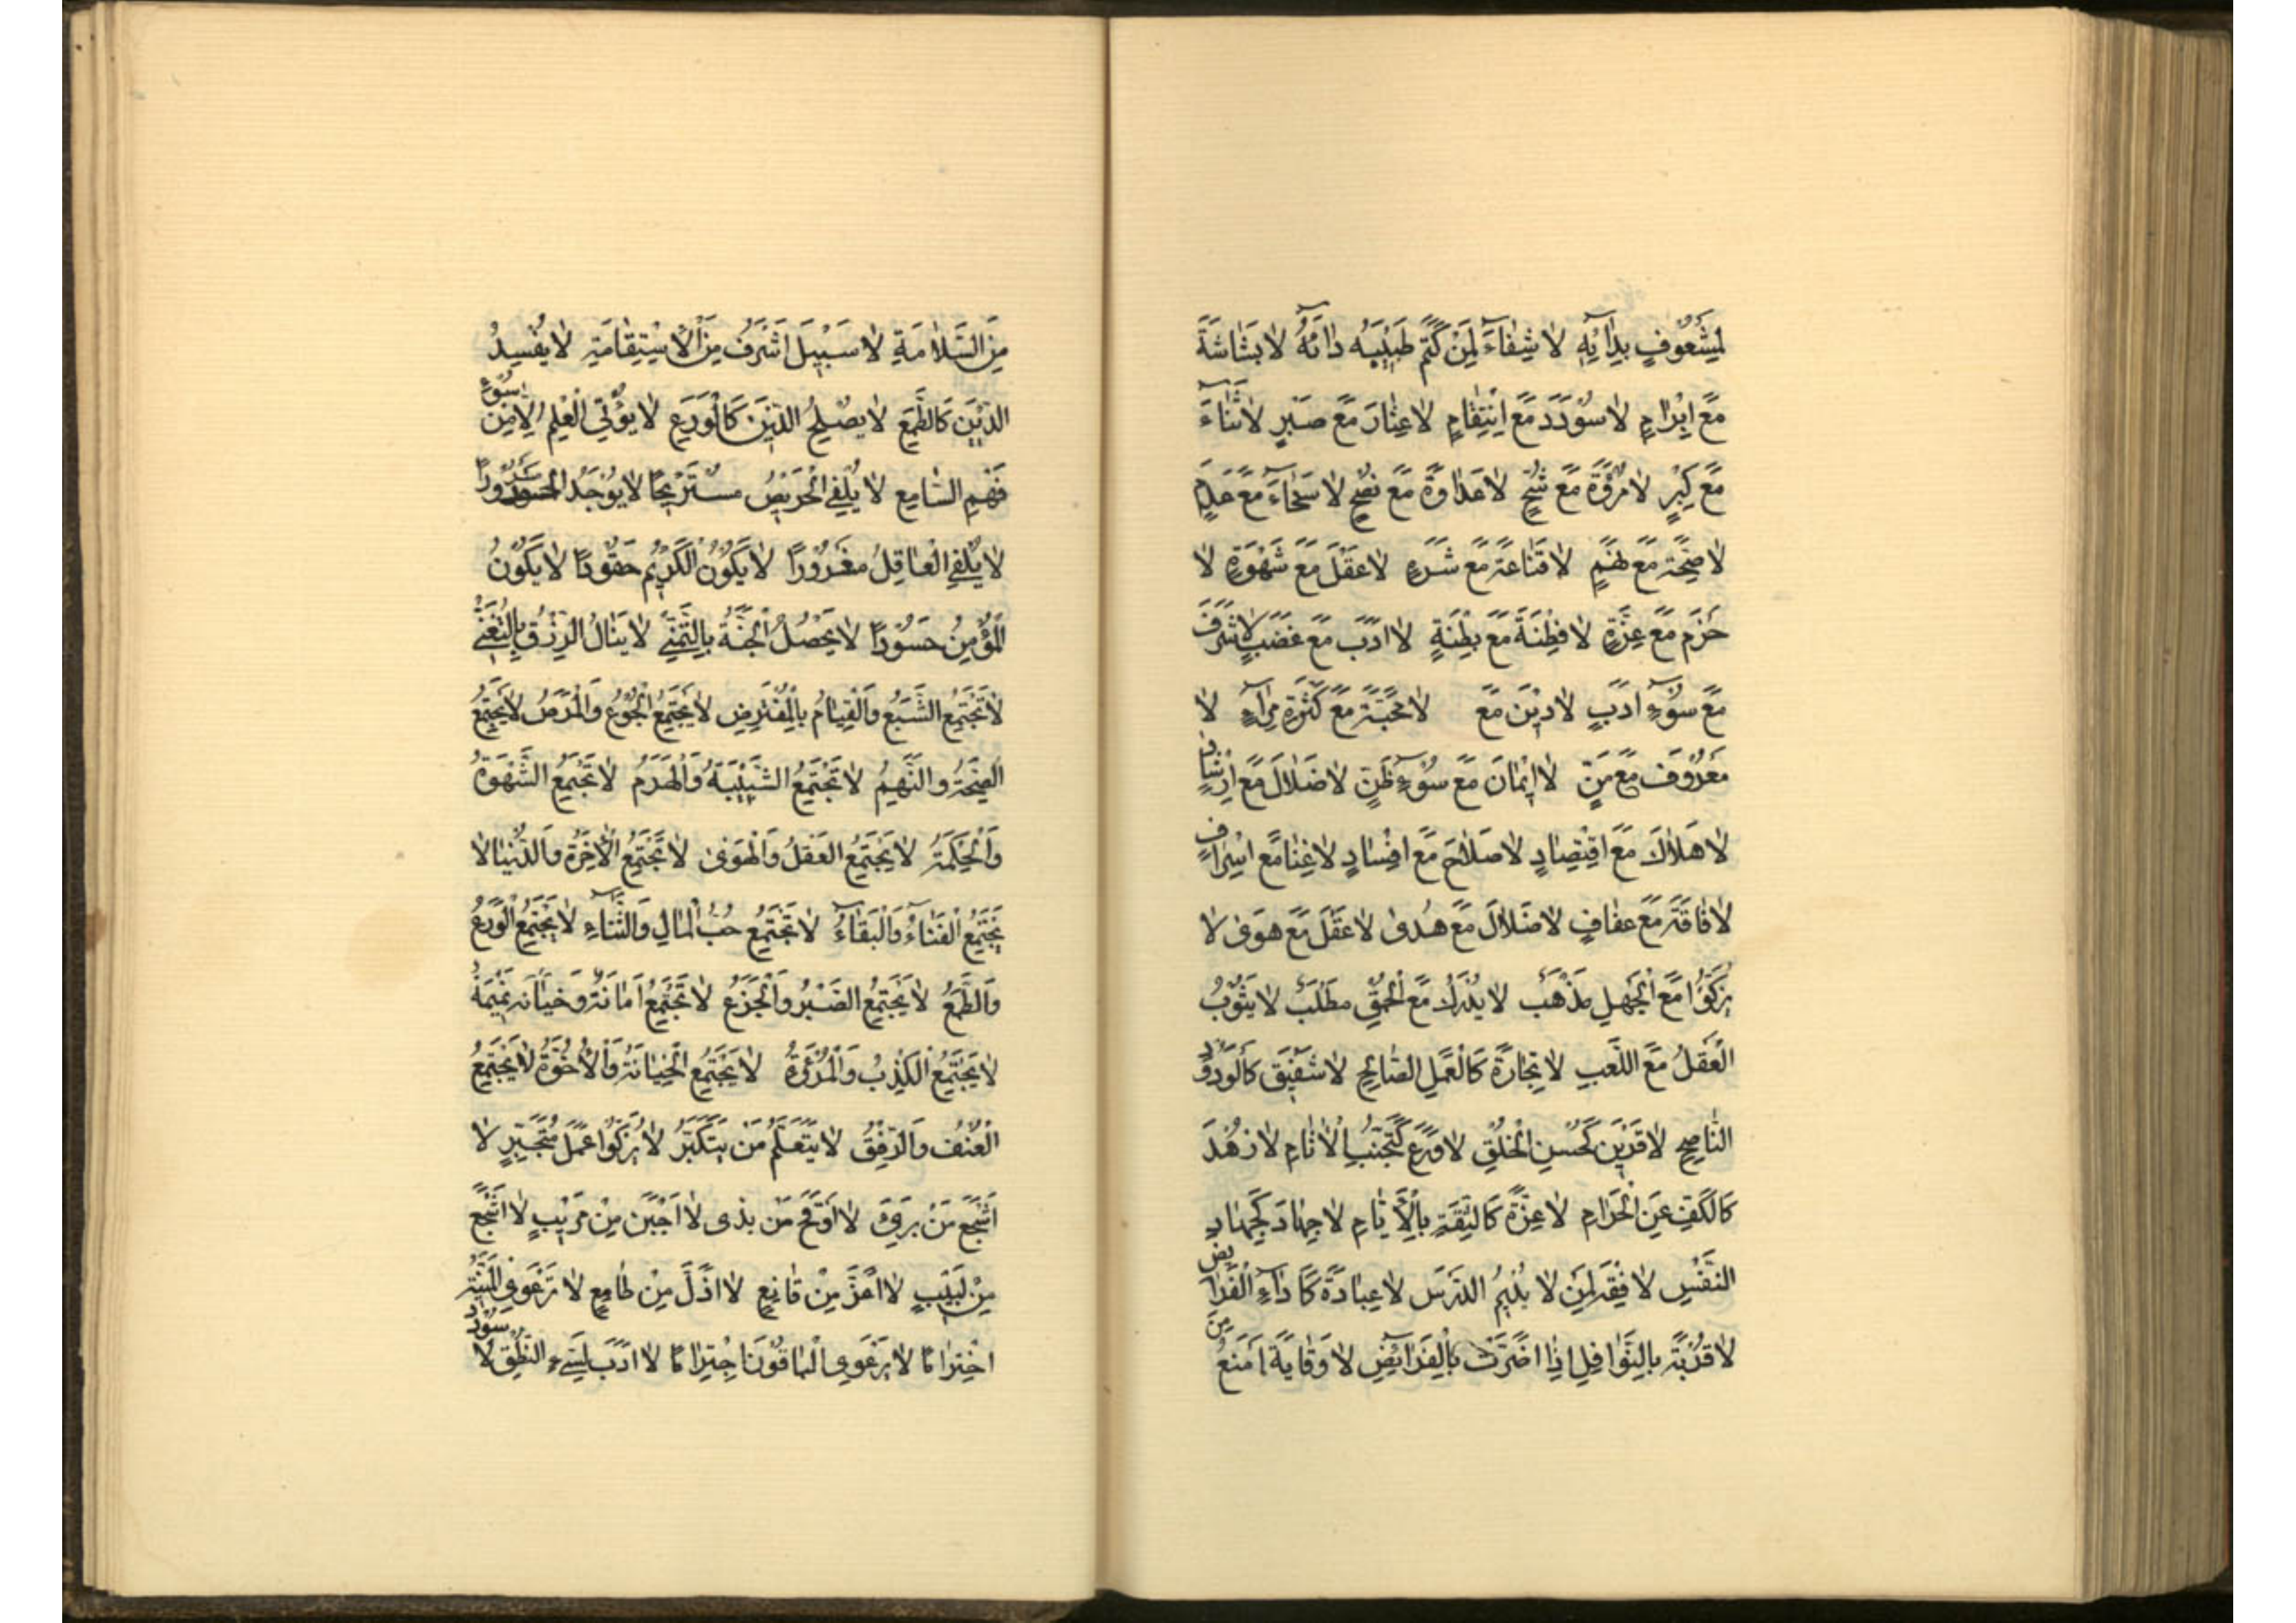 لِمَشْعُوفٍ بِدَائِهِ لَا شِفَاءَ لِمَنْ كَتَمَ طَبِيبَهُ دَائَهُ لَا بَشَاشَةَ
مَعَ اِبْرَامٍ لَا سُوْدَدَ مَعَ اِنْتِقَامٍ لَا عِثَارَ مَعَ صَبْرٍ لَا ثَنَاءَ
مَعَ كِبْرٍ لَا مُرُوَّةَ مَعَ شُحٍّ لَا عَدَاوَةَ مَعَ نُصْحٍ لَا سَخَاءَ مَعَ عَدَمٍ
لَا صِحَّةَ مَعَ نَهَمٍ لَا قَنَاعَةَ مَعَ شَرَهٍ لَا عَقْلَ مَعَ شَهْوَةٍ لَا
حَزْمَ مَعَ عِزَّةٍ لَا فِطْنَةَ مَعَ بِطْنَةٍ لَا اَدَبَ مَعَ غَضَبٍ لَا شَرَفَ
مَعَ سُوْءِ اَدَبٍ لَا دِيْنَ مَعَ لَا مَحَبَّةَ مَعَ كَثْرَةِ مِرَاءٍ لَا
مَعْرُوْفَ مَعَ مَنٍّ لَا اِيْمَانَ مَعَ سُوْءِ ظَنٍّ لَا ضَلَالَ مَعَ اِرْشَادٍ
لَا هَلَاكَ مَعَ اقْتِصَادٍ لَا صَلَاحَ مَعَ اِفْسَادٍ لَا غِنَا مَعَ اِسْرَافٍ
لَا فَاقَةَ مَعَ عَفَافٍ لَا ضَلَالَ مَعَ هُدىٰ لَا عَقْلَ مَعَ هَوىٰ لَا
يَزْكُوْا مَعَ الْجَهْلِ مَذْهَبٌ لَا يُدْرَكُ مَعَ الْحُمْقِ مَطْلَبٌ لَا يَثُوْبُ
الْعَقْلُ مَعَ اللَّعِبِ لَا تِجَارَةَ كَالْعَمَلِ الصَّالِحِ لَا شَفِيْقَ كَالْوَدُوْدِ
النَّاصِحِ لَا قَرِيْنَ كَحُسْنِ الْخُلْقِ لَا وَرَعَ كَتَجَنُّبِ الْاٰثَامِ لَا زُهْدَ
كَالْكَفِّ عَنِ الْحَرَامِ لَا عِزَّةَ كَالثِّقَةِ بِالْاَيَّامِ لَا جِهَادَ كَجِهَادِ
النَّفْسِ لَا فِقْهَ لِمَنْ لَا يُدِيْمُ الدَّرْسَ لَا عِبَادَةَ كَاَدَاءِ الْفَرَائِضِ
لَا قُرْبَةَ بِالنَّوَافِلِ اِذَا اَضَرَّتْ بِالْفَرَائِضِ لَا وَقَايَةَ اَمْنَعُ مِنَ
مِنَ السَّلَامَةِ لَا سَبِيْلَ اَشْرَفُ مِنَ الْاِسْتِقَامَةِ لَا يُفْسِدُ
الدِّيْنَ كَالطَّمَعِ لَا يُصْلِحُ الدِّيْنَ كَالْوَرَعِ لَا يُؤْتَى الْعِلْمُ اِلَّا مِنْ سُوْءِ
فَهْمِ السَّامِعِ لَا يُلْفَى الْحَرِيْصُ مُسْتَرِيْحًا لَا يُوْجَدُ الْحَسُوْدُ مَسْرُوْرًا
لَا يُلْفَى الْعَاقِلُ مَغْرُوْرًا لَا يَكُوْنُ الْكَرِيْمُ حَقُوْدًا لَا يَكُوْنُ
الْمُؤْمِنُ حَسُوْدًا لَا يَحْصُلُ الْجَنَّةُ بِالتَّمَنِّيْ لَا يَنَالُ الرِّزْقُ بِالتَّعَنِّيْ
لَا تَجْتَمِعُ الشَّبَعُ وَالْقِيَامُ بِالْمُفْتَرِضِ لَا يَجْتَمِعُ الْجُوْعُ وَالْمَرَضُ لَا يَجْتَمِعُ
الصِّحَّةُ وَالنَّهِيْمُ لَا تَجْتَمِعُ الشَّيْبَةُ وَالْهَرَمُ لَا تَجْتَمِعُ الشَّهْوَةُ
وَالْحِكْمَةُ لَا يَجْتَمِعُ الْعَقْلُ وَالْهَوىٰ لَا تَجْتَمِعُ الْاٰخِرَةُ وَالدُّنْيَا لَا
يَجْتَمِعُ الْفَنَاءُ وَالْبَقَاءُ لَا تَجْتَمِعُ حُبُّ الْمَالِ وَالثَّنَاءِ لَا يَجْتَمِعُ الْوَرَعُ
وَالطَّمَعُ لَا يَجْتَمِعُ الصَّبْرُ وَالْجَزَعُ لَا تَجْتَمِعُ اَمَانَةٌ وَخِيَانَه نَمِيْمَةٌ
لَا يَجْتَمِعُ الْكَذِبُ وَالْمُرُوَّةُ لَا يَجْتَمِعُ الْخِيَانَةُ وَالْاُخُوَّةُ لَا يَجْتَمِعُ
الْعُنْفُ وَالرِّفْقُ لَا يَتَعَلَّمُ مَنْ يَتَكَبَّرُ لَا يَزْكُوْا عَمَلُ مُتَجَبِّرٍ لَا
اَشْجَعَ مَنْ بَرِيْءٍ لَا اَوْقَحَ مَنْ بذى لَا اَجْبَنَ مِنْ مُرِيْبٍ لَا اَشْجَعَ
مِنْ لَبِيْبٍ لَا اَعَزَّ مِنْ قَانِعٍ لَا اَذَلَّ مِنْ طَامِعٍ لَا تَرْعَوِى الْمَنِيَّةُ
اخْتِرَامًا لَا يَرْعَوِى الْبَاقُوْنَ اجْتِرَامًا لَا اَدَبَ لِسَيِّءِ النُّطْقِ لَا سُوْدَدَ